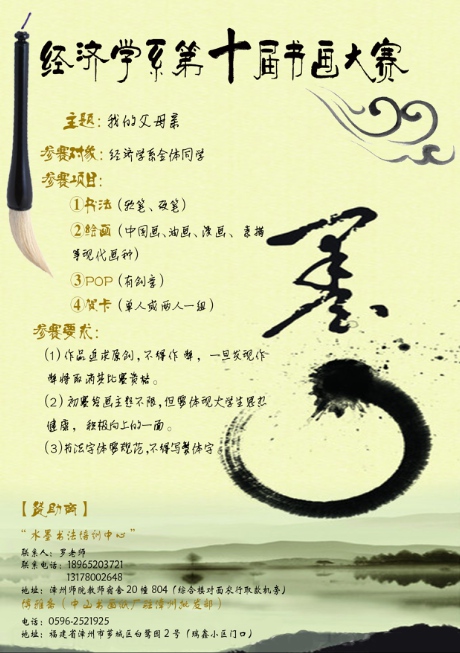 经济学系第十届书画大赛
主题：我的父母亲
参赛对象：经济学系全体同学
参赛项目：
①书法（软笔、硬笔）
②绘画（中国画、油画、漫画、素描
等现代画种）
③POP（有创意）
④贺卡（单人或两人一组）
参赛要求：
(1)作品追求原创,不得作弊，一旦发现作
弊情取消其比赛资格。
(2)初赛绘画主题不限,但需体现大学生思想
健康，积极向上的一面。
(3)书法字体需规范,不得写繁体字
墨
【赞助商】
“水墨书法培训中心”
联系人：罗老师
联系电话：18965203721
13178002648
地址：漳州师院教师宿舍20幢804（综合楼对面农行取款机旁）
博雅斋（中山书画院/驻漳州批发部）
电话：0596-2521925
地址：福建省漳州市芗城区白鹭园2号（瑞鑫小区门口）